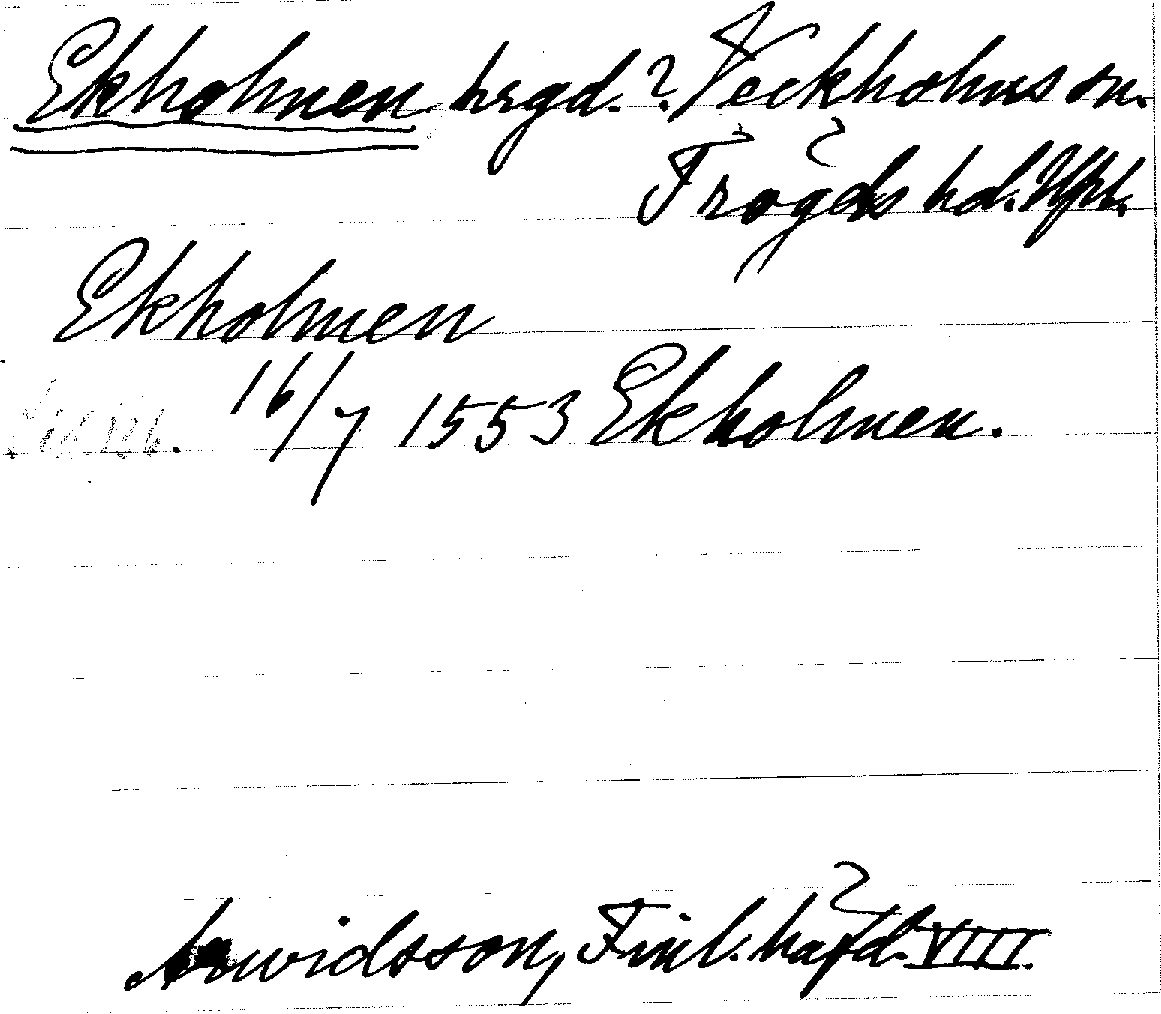 Ekholmen hrgd.? Veckholms sn.
Trögds hd. Upl.
Ekholmen
16/7 1553 Ekholmen.
Arwidsson, Finl. häfd. VIII.